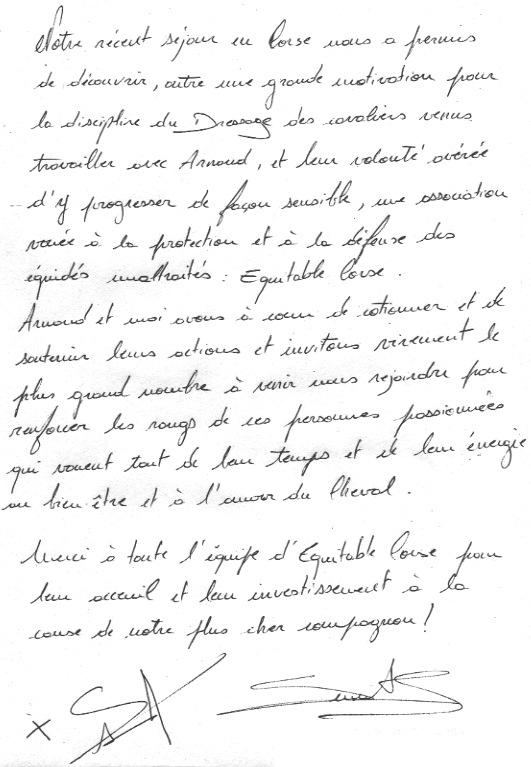 Notre récent séjour en Corse nous a permis
de découvrir, outre une grande motivation pour
la discipline du Dressage des cavaliers venus
travailler avec Arnaud, et leur volonté avérée
d'y progresser de façon sensible, une association
vouée à la protection et à la défense des
équidés maltraités : Equitable Corse.
Arnaud et moi avons à cœur de cotionner et de
soutenir leurs actions et invitons vivement le
plus grand nombre à venir nous rejoindre pour
renforcer les rangs de ces personnes passionnées
qui vouent tant de leur temps et de leur énergie
au bien-être et à l'amour du Cheval.
Merci à toute l'équipe d'Equitable Corse pour
leur accueil et leur investissement à la
cause de notre plus cher compagnon !
X